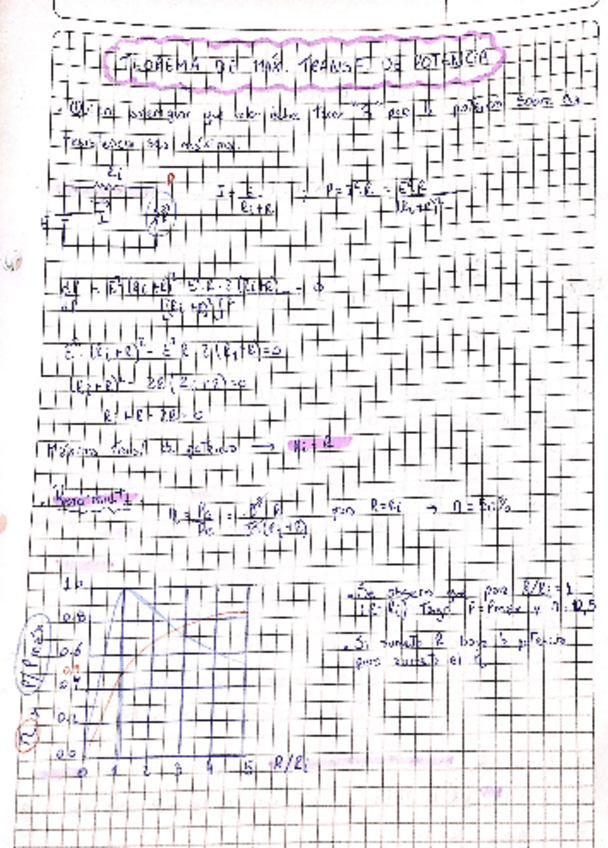 TEOREMA DE MÁX. TRANSF. DE POTENCIA
que valor debe tener "R" para la potencia sobre la
resistencia sea máxima.
Ri
P
I = E/(Ri+R) ∴ P = I².R = E².R/(Ri+R)²
E
I
dP/dR = E².(Ri+R)² - E².R.2(Ri+R)/[(Ri+R)²]² = 0
E².(Ri+R)² - E².R.2(Ri+R)=0
(Ri+R)² - 2R(Ri+R)=0
Ri+R-2R=0
Máxima transf. de potencia → Ri = R
Rendimiento
η = = I².R/I².(Ri+R) para R=Ri → η = 50%
1.0
0.8
0.6
0.4
0.0
0 1 2 3 4 5 R/Ri
η y P/Pmáx
Se observa que para R/Ri = 1
(R=Ri) P=Pmáx y η=0,5
Si aumento R baja la potencia
pero aumenta el η.